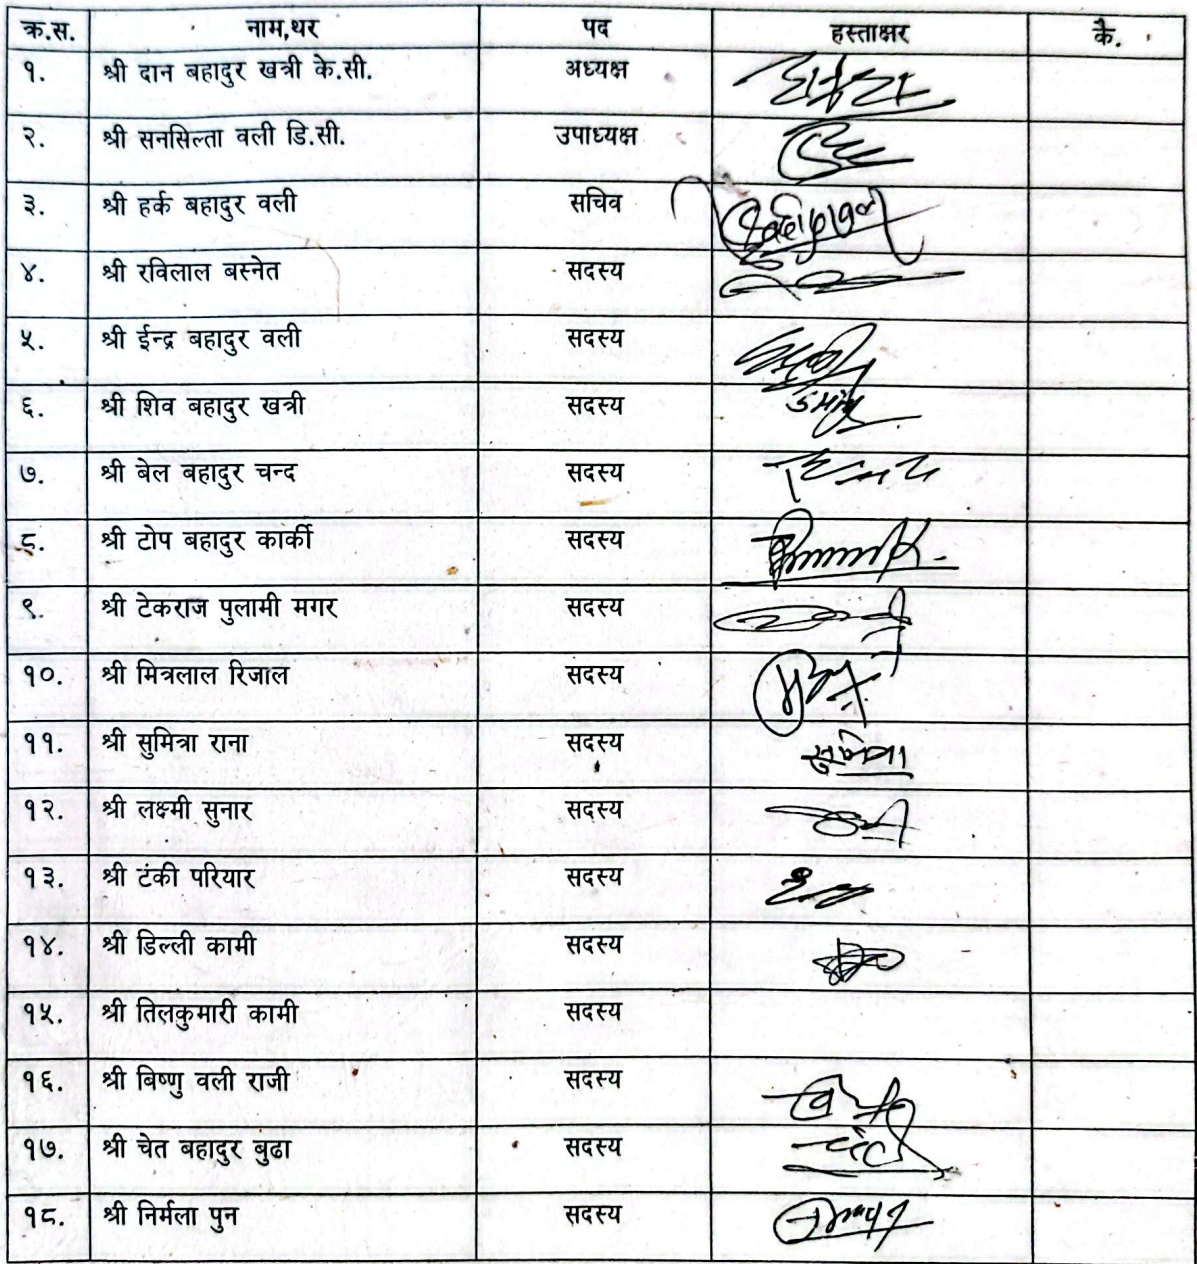 क्र.स. नाम,थर पद हस्ताक्षर कै.
१. श्री दान बहादुर खत्री के.सी. अध्यक्ष
२. श्री सनसिल्ता वली डि.सी. उपाध्यक्ष
३. श्री हर्क बहादुर वली सचिव
४. श्री रविलाल बस्नेत सदस्य
५. श्री ईन्द्र बहादुर वली सदस्य
६. श्री शिव बहादुर खत्री सदस्य
७. श्री बेल बहादुर चन्द सदस्य
८. श्री टोप बहादुर कार्की सदस्य
९. श्री टेकराज पुलामी मगर सदस्य
१०. श्री मित्रलाल रिजाल सदस्य
११. श्री सुमित्रा राना सदस्य सुमित्रा
१२. श्री लक्ष्मी सुनार सदस्य
१३. श्री टंकी परियार सदस्य
१४. श्री डिल्ली कामी सदस्य
१५. श्री तिलकुमारी कामी सदस्य
१६. श्री बिष्णु वली राजी सदस्य
१७. श्री चेत बहादुर बुढा सदस्य
१८. श्री निर्मला पुन सदस्य